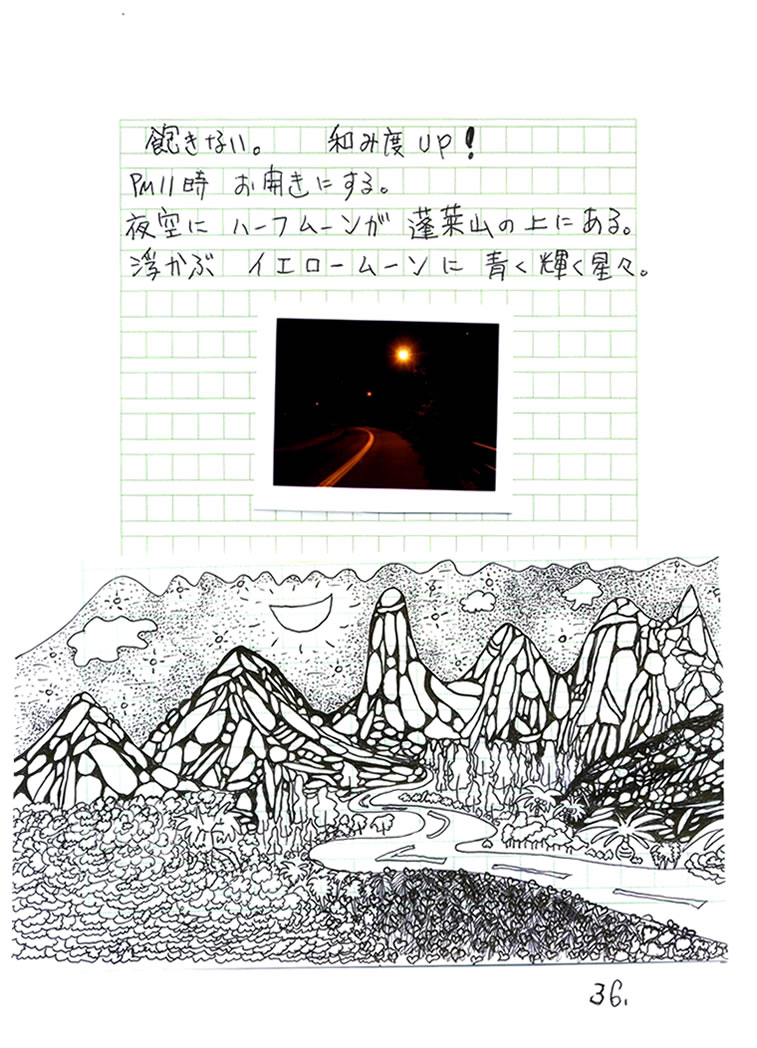 飽きない。 和み度UP!
PM11時 お開きにする。
夜空に ハーフムーンが 蓬莱山の上にある。
浮かぶ イエロームーンに 青く輝く星々。
36.